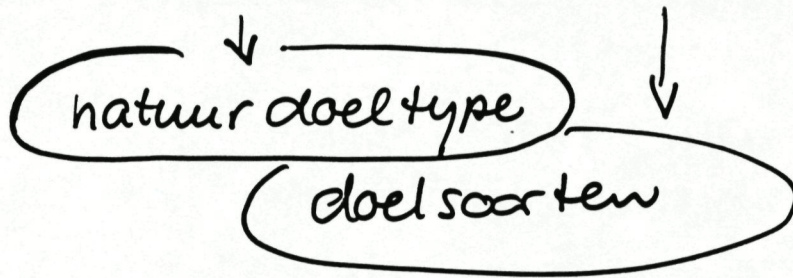 natuurdoeltype
doelsoorten